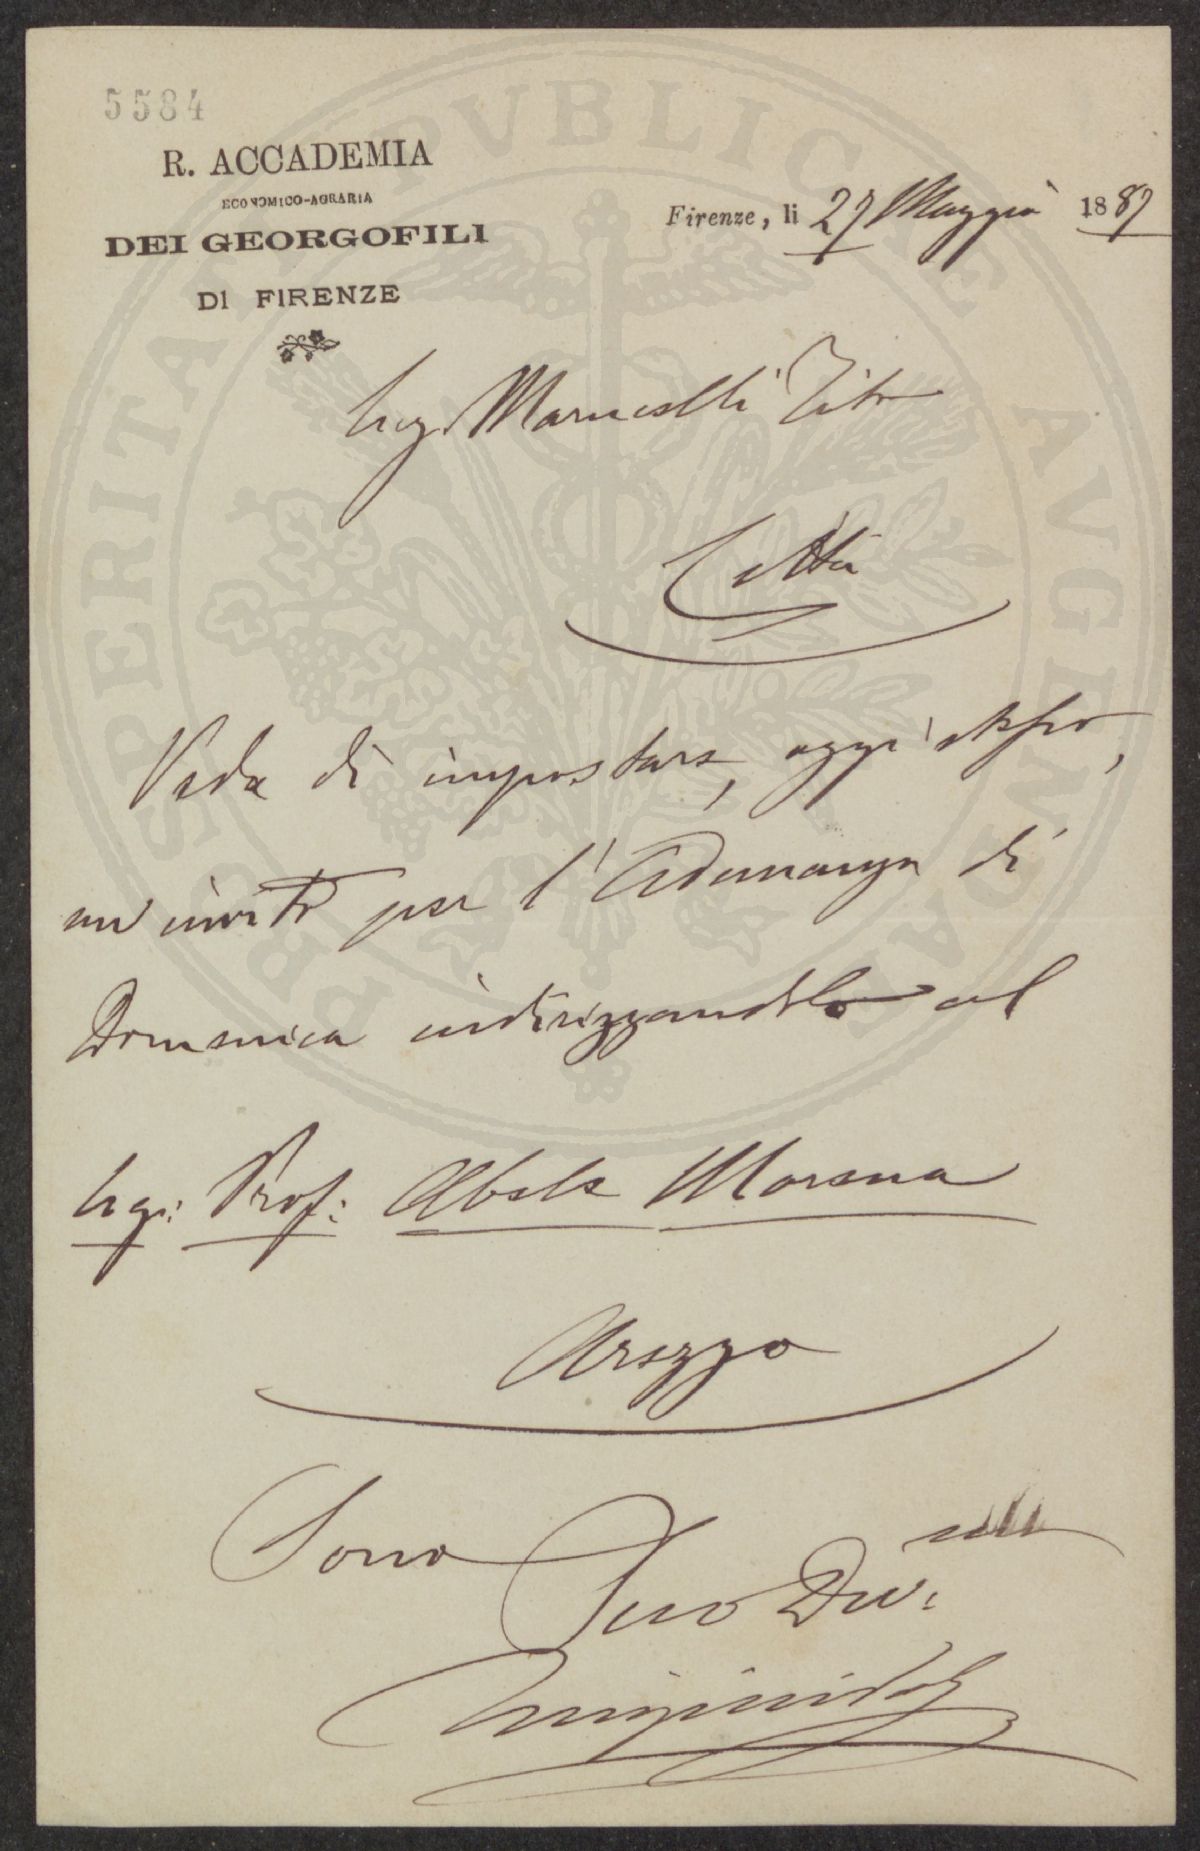 5584
R. ACCADEMIA
ECONOMICO-AGRARIA
DEI GEORGOFILI
DI FIRENZE
Firenze, li 27 Maggio 1887
Sig. Marucelli Tito
Città
Veda di impostare, oggi stesso,
un invito per l'Adunanza di
Domenica indirizzandolo al
Sig: Prof: Abele Morena
Arezzo
Sono
Suo Dev:
PROSPERITATI PUBLICAE AUGENDAE